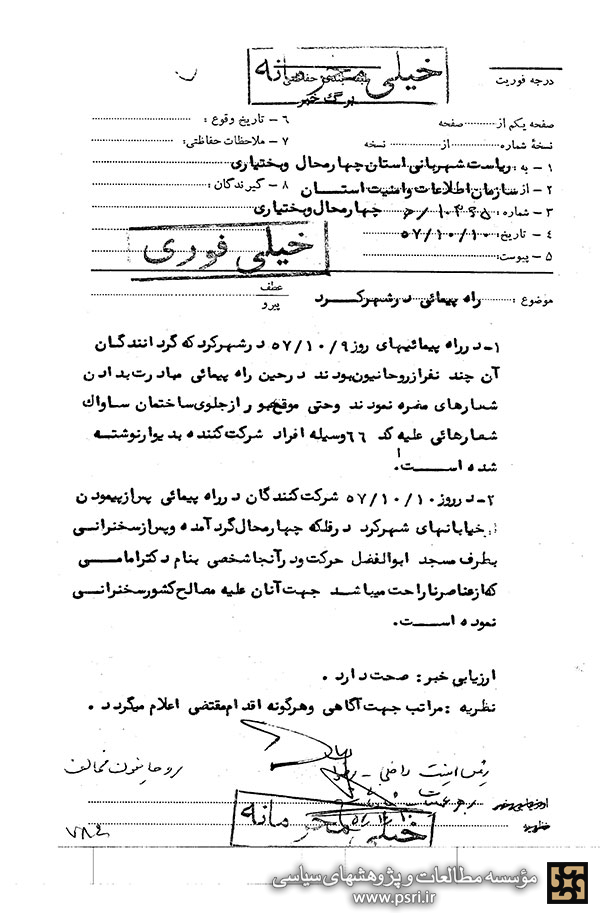 خیلی محرمانه
درجه فوریت
طبقه بندی حفاظتی
برگ خبر
صفحه یکم از صفحه
۶ - تاریخ وقوع :
نسخهٔ شماره از نسخه
۷ - ملاحظات حفاظتی:
۱ - به : ریاست شهربانی استان چهارمحال وبختیاری
۲ - از سازمان اطلاعات وامنیت استان
۸ - گیرندگان :
۳ - شماره: چهارمحال وبختیاری
۴ - تاریخ: ۵۷/۱۰/۱۰
خیلی فوری
۵ - پیوست:
موضوع : راه پیمائی درشهرکرد
عطف
پیرو
۱- درراه پیمائیهای روز ۵۷/۱۰/۹ درشهرکرد که گردانندگان
آن چند نفرازروحانیون بودند درحین راه پیمائی مبادرت بدادن
شعارهای مضره نمودند وحتی موقع عبور ازجلوی ساختمان ساواک
شعارهائی علیه کد ۶۶ وسیله افراد شرکت کننده بدیوارنوشته
شده است.
۲- درروز ۵۷/۱۰/۱۰ شرکت کنندگان درراه پیمائی پس ازپیمودن
خیابانهای شهرکرد درفلکه چهارمحال گردآمده وپس ازسخنرانی
بطرف مسجد ابوالفضل حرکت ودرآنجا شخصی بنام دکترامامی
که ازعناصرناراحت میباشد جهت آنان علیه مصالح کشورسخنرانی
نموده است.
ارزیابی خبر : صحت دارد .
نظریه : مراتب جهت آگاهی وهرگونه اقدام مقتضی اعلام میگردد .
رئیس امنیت داخلی
روحانیون مخالف
خیلی محرمانه
۷۸۴
مؤسسه مطالعات و پژوهشهای سیاسی
www.psri.ir